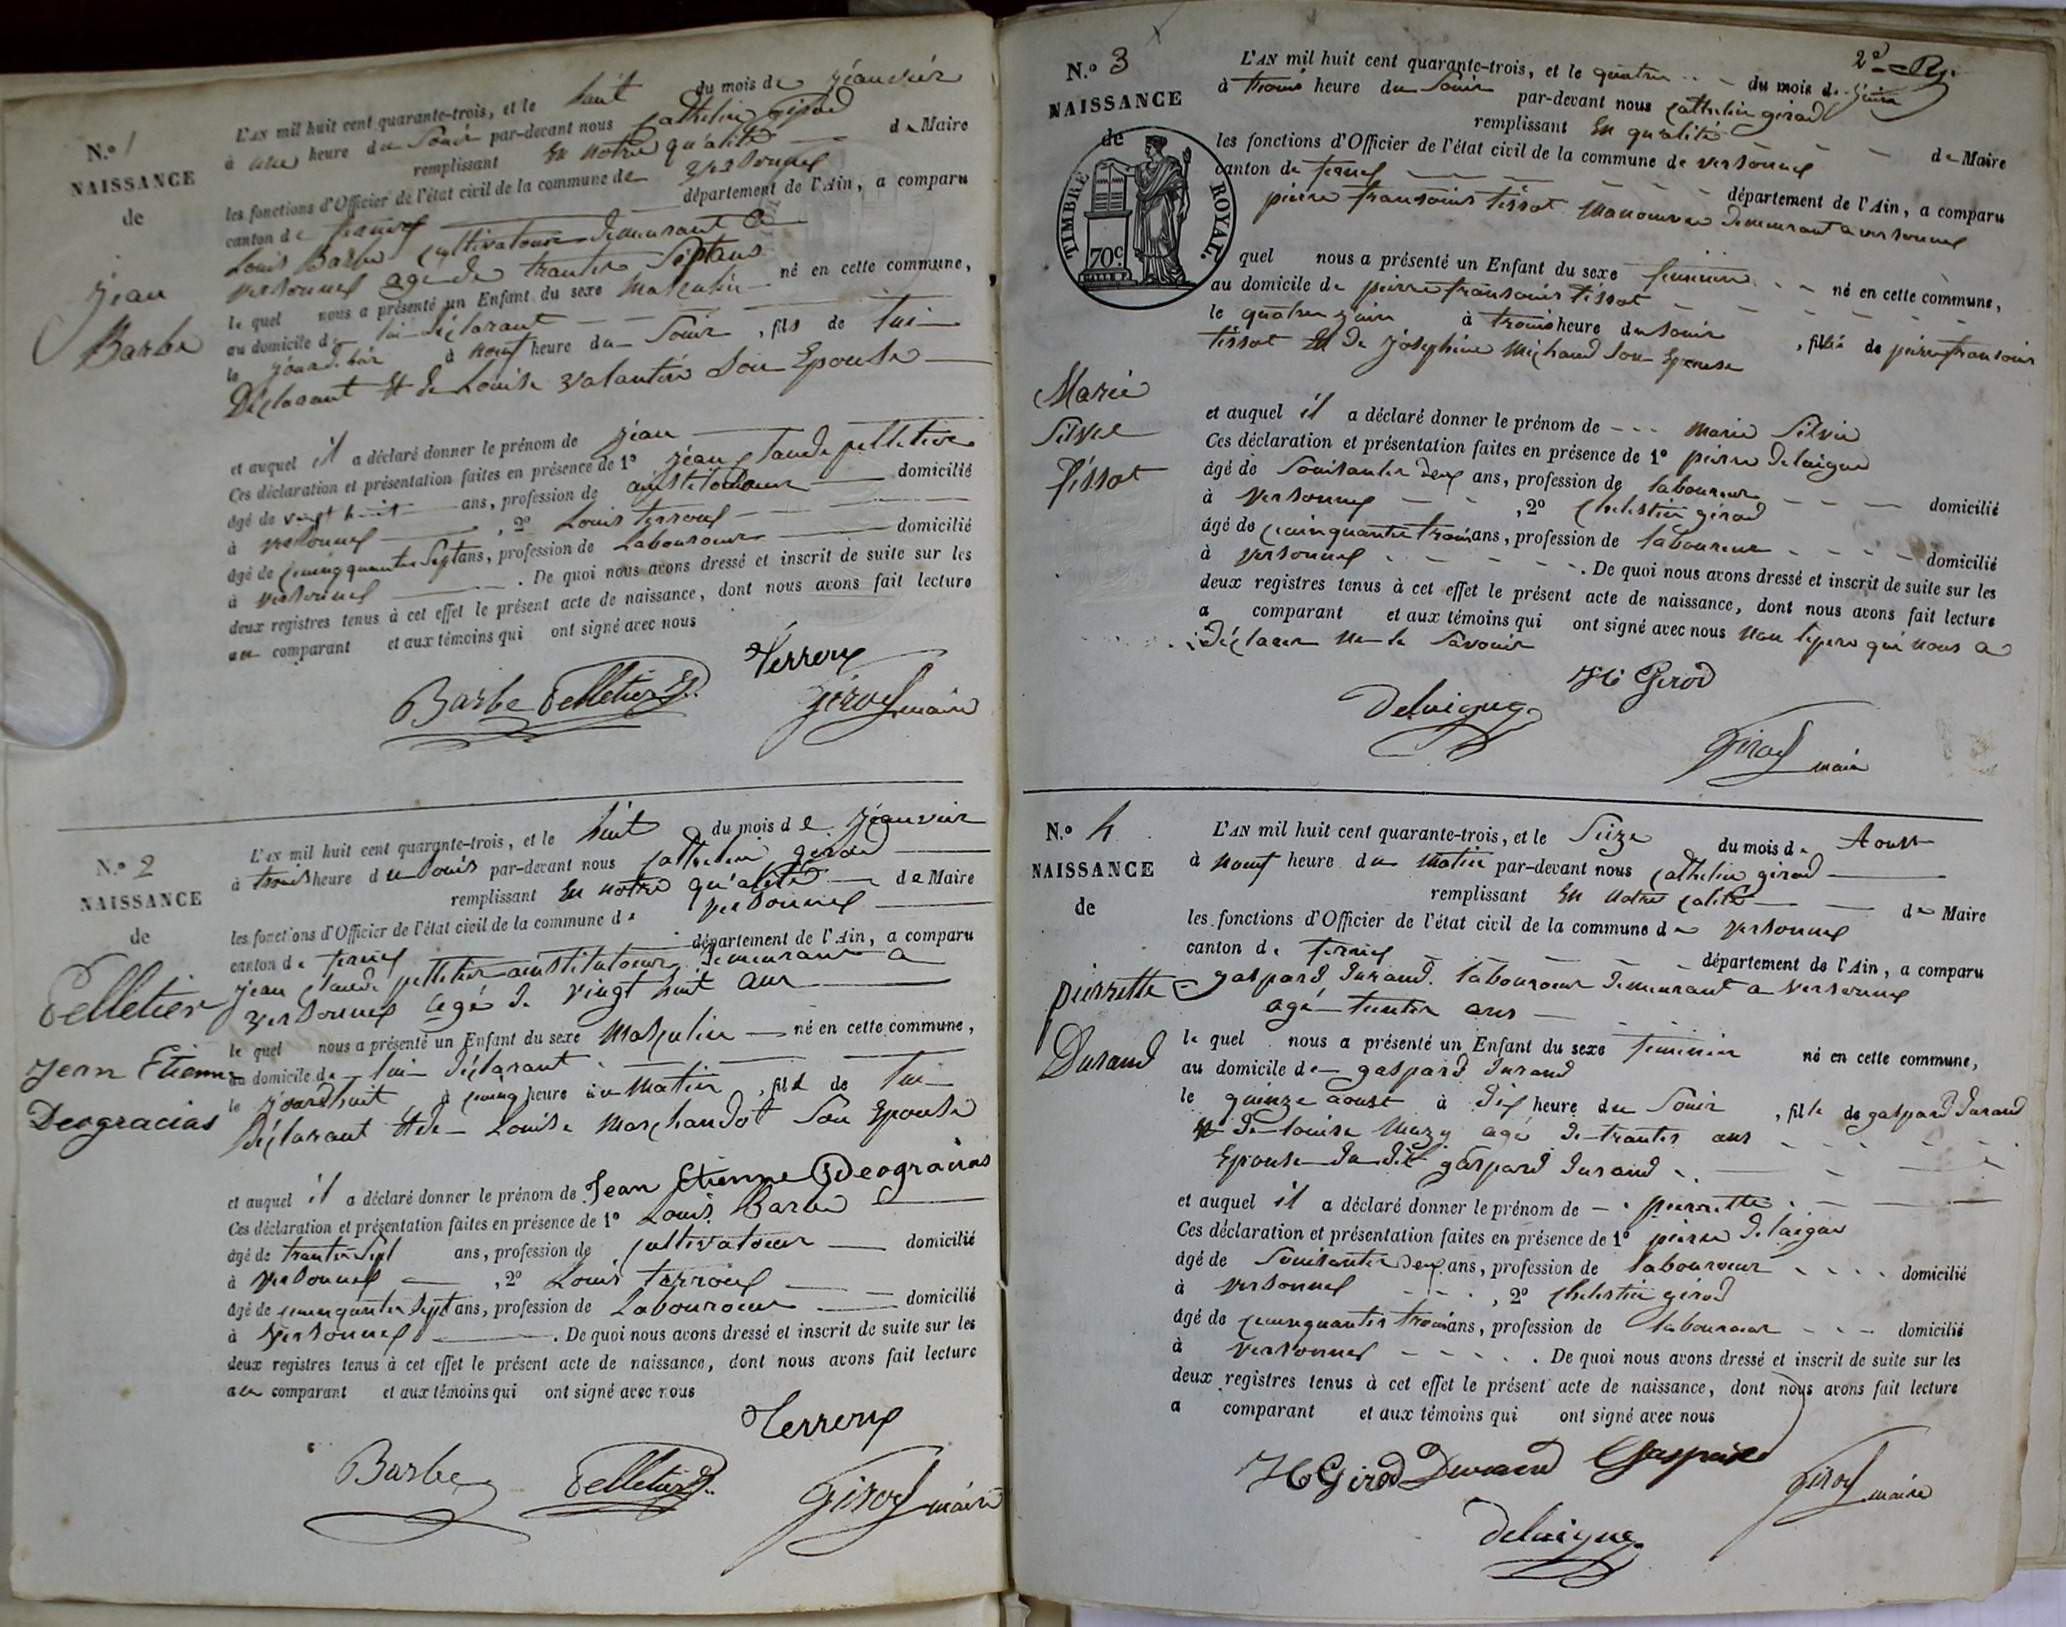 N.º 1
NAISSANCE
de
Jean
Barbe
L'AN mil huit cent quarante-trois, et le huit du mois de jéanviér
à une heure du Souir par-devant nous Cathelin Girod
remplissant En notre qu'alité de Maire
les fonctions d'Officier de l'état civil de la commune de versonnex
canton de fernex département de l'Ain, a comparu
Louis Barbe Cultivatoure demeurant a
versonnex agé de trantes Septans
le quel nous a présenté un Enfant du sexe Masculin né en cette commune,
au domicile de lui déclarant
le à neuf heure du Souir, fils de lui
Déclarant Et de Louise valantin Son Epouse
et auquel il a déclaré donner le prénom de jéan
Ces déclaration et présentation faites en présence de 1º jéan Claude pelletier
âgé de vingt huit ans, profession de ainstitutoeur domicilié
à versonnex, 2º Louis terroux
âgé de cuinqquantes Septans, profession de Laboureure domicilié
à versonnex. De quoi nous avons dressé et inscrit de suite sur les
deux registres tenus à cet effet le présent acte de naissance, dont nous avons fait lecture
au comparant et aux témoins qui ont signé avec nous
Terroux
Barbe Pelletier Girod maire
N.º 2
NAISSANCE
de
Pelletier
Jean Etienne
Deogracias
L'AN mil huit cent quarante-trois, et le huit du mois de jéanvier
à trouis heure du Souir par-devant nous Cathelin girod
remplissant En notre qu'alité de Maire
les fonctions d'Officier de l'état civil de la commune de versonnex
canton de fernex département de l'Ain, a comparu
jéan Claude pelletier ainstitutoeur demeurant a
versonnex agé de vingt huit ans
le quel nous a présenté un Enfant du sexe Masculin né en cette commune,
au domicile de lui déclarant
le à cuinq heure du Matin, fils de lui
déclarant Et de Louise Marchandot Son Epouse
et auquel il a déclaré donner le prénom de Jean Etienne Deogracias
Ces déclaration et présentation faites en présence de 1º Louis Barbe
âgé de trantes Sept ans, profession de Cultivatoeur domicilié
à versonnex, 2º Louis terroux
âgé de cuinquantes Sept ans, profession de Labouroeur domicilié
à versonnex. De quoi nous avons dressé et inscrit de suite sur les
deux registres tenus à cet effet le présent acte de naissance, dont nous avons fait lecture
au comparant et aux témoins qui ont signé avec nous
Terroux
Barbe Pelletier Girod maire
2e
N.º 3
NAISSANCE
de
TIMBRE ROYAL.
70c.
Marie
Silvie
Tissot
L'AN mil huit cent quarante-trois, et le quatre du mois de juin
à trouis heure du Souir par-devant nous Cathelin girod
remplissant En qu'alité de Maire
les fonctions d'Officier de l'état civil de la commune de versonnex
canton de fernex département de l'Ain, a comparu
pierre fransouis tissot Manouvre demeurant a versonnex
quel nous a présenté un Enfant du sexe feminin né en cette commune,
au domicile de pierre fransouis tissot
le quatre juin à trouis heure du souir, fille de pierre fransouis
tissot Et de joséphine Michaud Son Epouse
et auquel il a déclaré donner le prénom de Marie Silvie
Ces déclaration et présentation faites en présence de 1º pierre delaigue
âgé de Souisantes deux ans, profession de laboureur domicilié
à versonnex, 2º Chelestin girod
âgé de cuinquantes trouis ans, profession de laboureur domicilié
à versonnex. De quoi nous avons dressé et inscrit de suite sur les
deux registres tenus à cet effet le présent acte de naissance, dont nous avons fait lecture
a comparant et aux témoins qui ont signé avec nous Non lepere qui nous a
déclarer ne le Savouir
Girod
Delaigue
Girod maire
N.º 4
NAISSANCE
de
pierrette
Durand
L'AN mil huit cent quarante-trois, et le Seize du mois de Aoust
à neuf heure du Matin par-devant nous Cathelin girod
remplissant En Notre Calité de Maire
les fonctions d'Officier de l'état civil de la commune de versonnex
canton de fernex département de l'Ain, a comparu
gaspard durand labouroeur demeurant a versonnex
agé trentes ans
le quel nous a présenté un Enfant du sexe feminin né en cette commune,
au domicile de gaspard durand
le quinze aoust à dix heure du Souir, fille de gaspard durand
Et de louise Mazy agé de trantes ans
Epouse du dit gaspard durand
et auquel il a déclaré donner le prénom de pierrette
Ces déclaration et présentation faites en présence de 1º pierre delaigue
âgé de Souisantes deux ans, profession de laboureeur domicilié
à versonnex, 2º Chelestin girod
âgé de cuinquantes trouis ans, profession de labouroeur domicilié
à versonnex. De quoi nous avons dressé et inscrit de suite sur les
deux registres tenus à cet effet le présent acte de naissance, dont nous avons fait lecture
a comparant et aux témoins qui ont signé avec nous
Girod Durand Gaspard Girod maire
delaigue